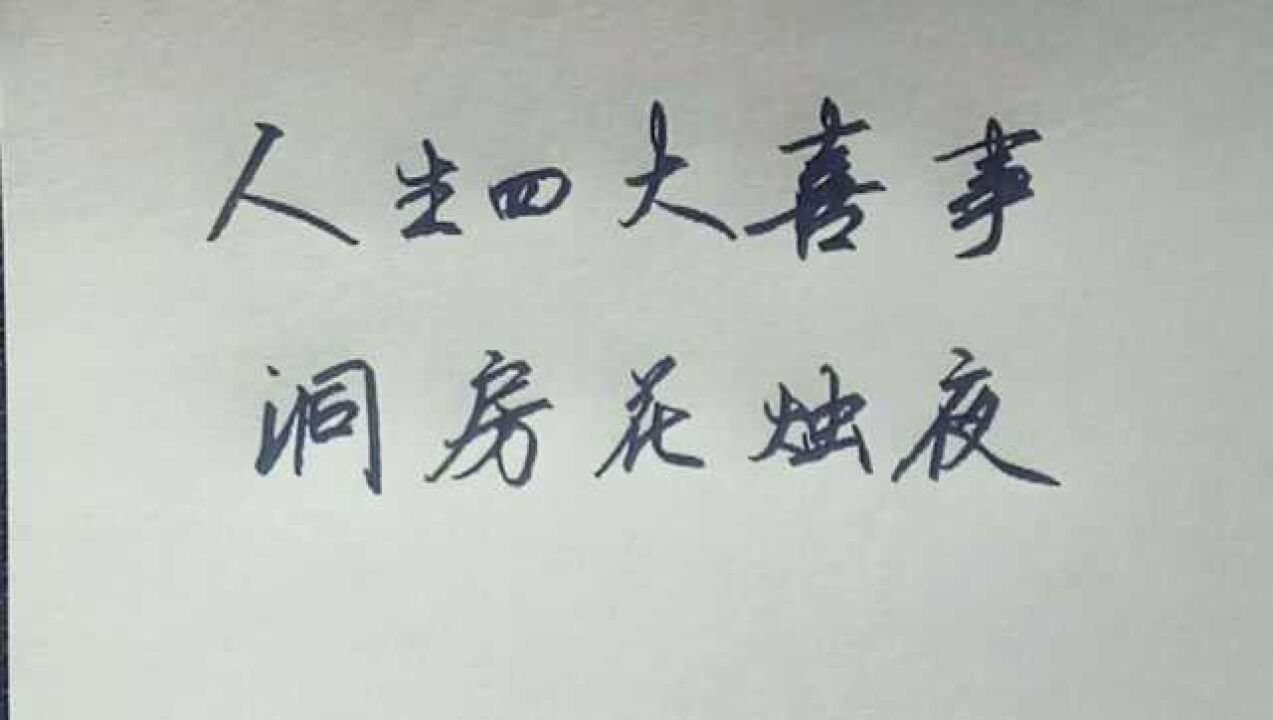 人生四大喜事
洞房花烛夜